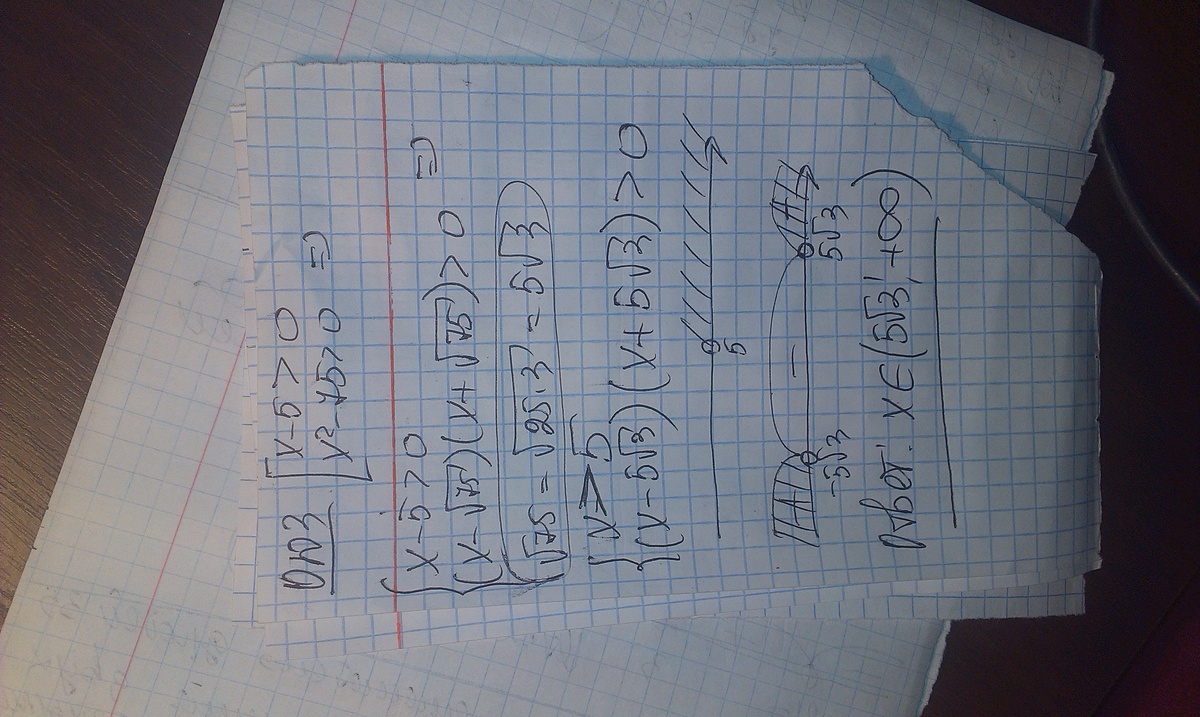 ОДЗ [ x-5>0
x²-75>0 =>
{ x-5>0
(x-√75)(x+√75)>0 =>
√75 = √25·3 = 5√3
{ x>5
(x-5√3)(x+5√3)>0
5
-
-5√3 5√3
Ответ: x∈(5√3; +∞)